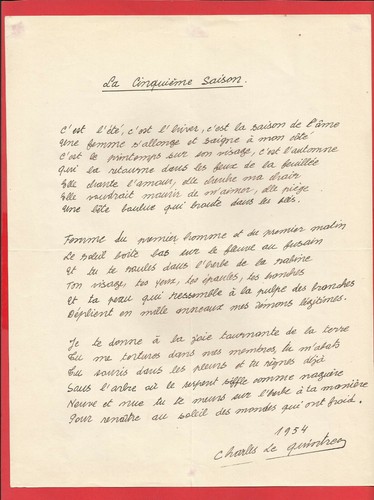 La Cinquième saison.
C'est l'été, c'est l'hiver, c'est la saison de l'âme
Une femme s'allonge et saigne à mon côté
C'est le printemps sur son visage, c'est l'automne
Qui la retourne dans les feux de la feuillée
Elle chante l'amour, elle cherche ma main
Elle voudrait mourir de m'aimer, elle piège
Une bête boiteuse qui brode dans les
Femme du premier homme et du premier matin
Le soleil boite bas sur le fleuve au fusain
Et tu te roules dans l'herbe de la
Ton visage, tes yeux, tes épaules, tes
Et ta peau qui ressemble à la pulpe des branches
Déplient en mille anneaux mes légitimes.
Je te donne à la joie tournante de la terre
Tu me tortures dans mes membres, tu m'abats
Tu souris dans les pleurs et tu règnes déjà
Sous l'arbre où le serpent siffle comme naguère
Neuve et nue tu te meurs sur l'herbe à ta manière
Pour renaître au soleil des mondes qui ont froid.
1954
Charles Le Quintrec